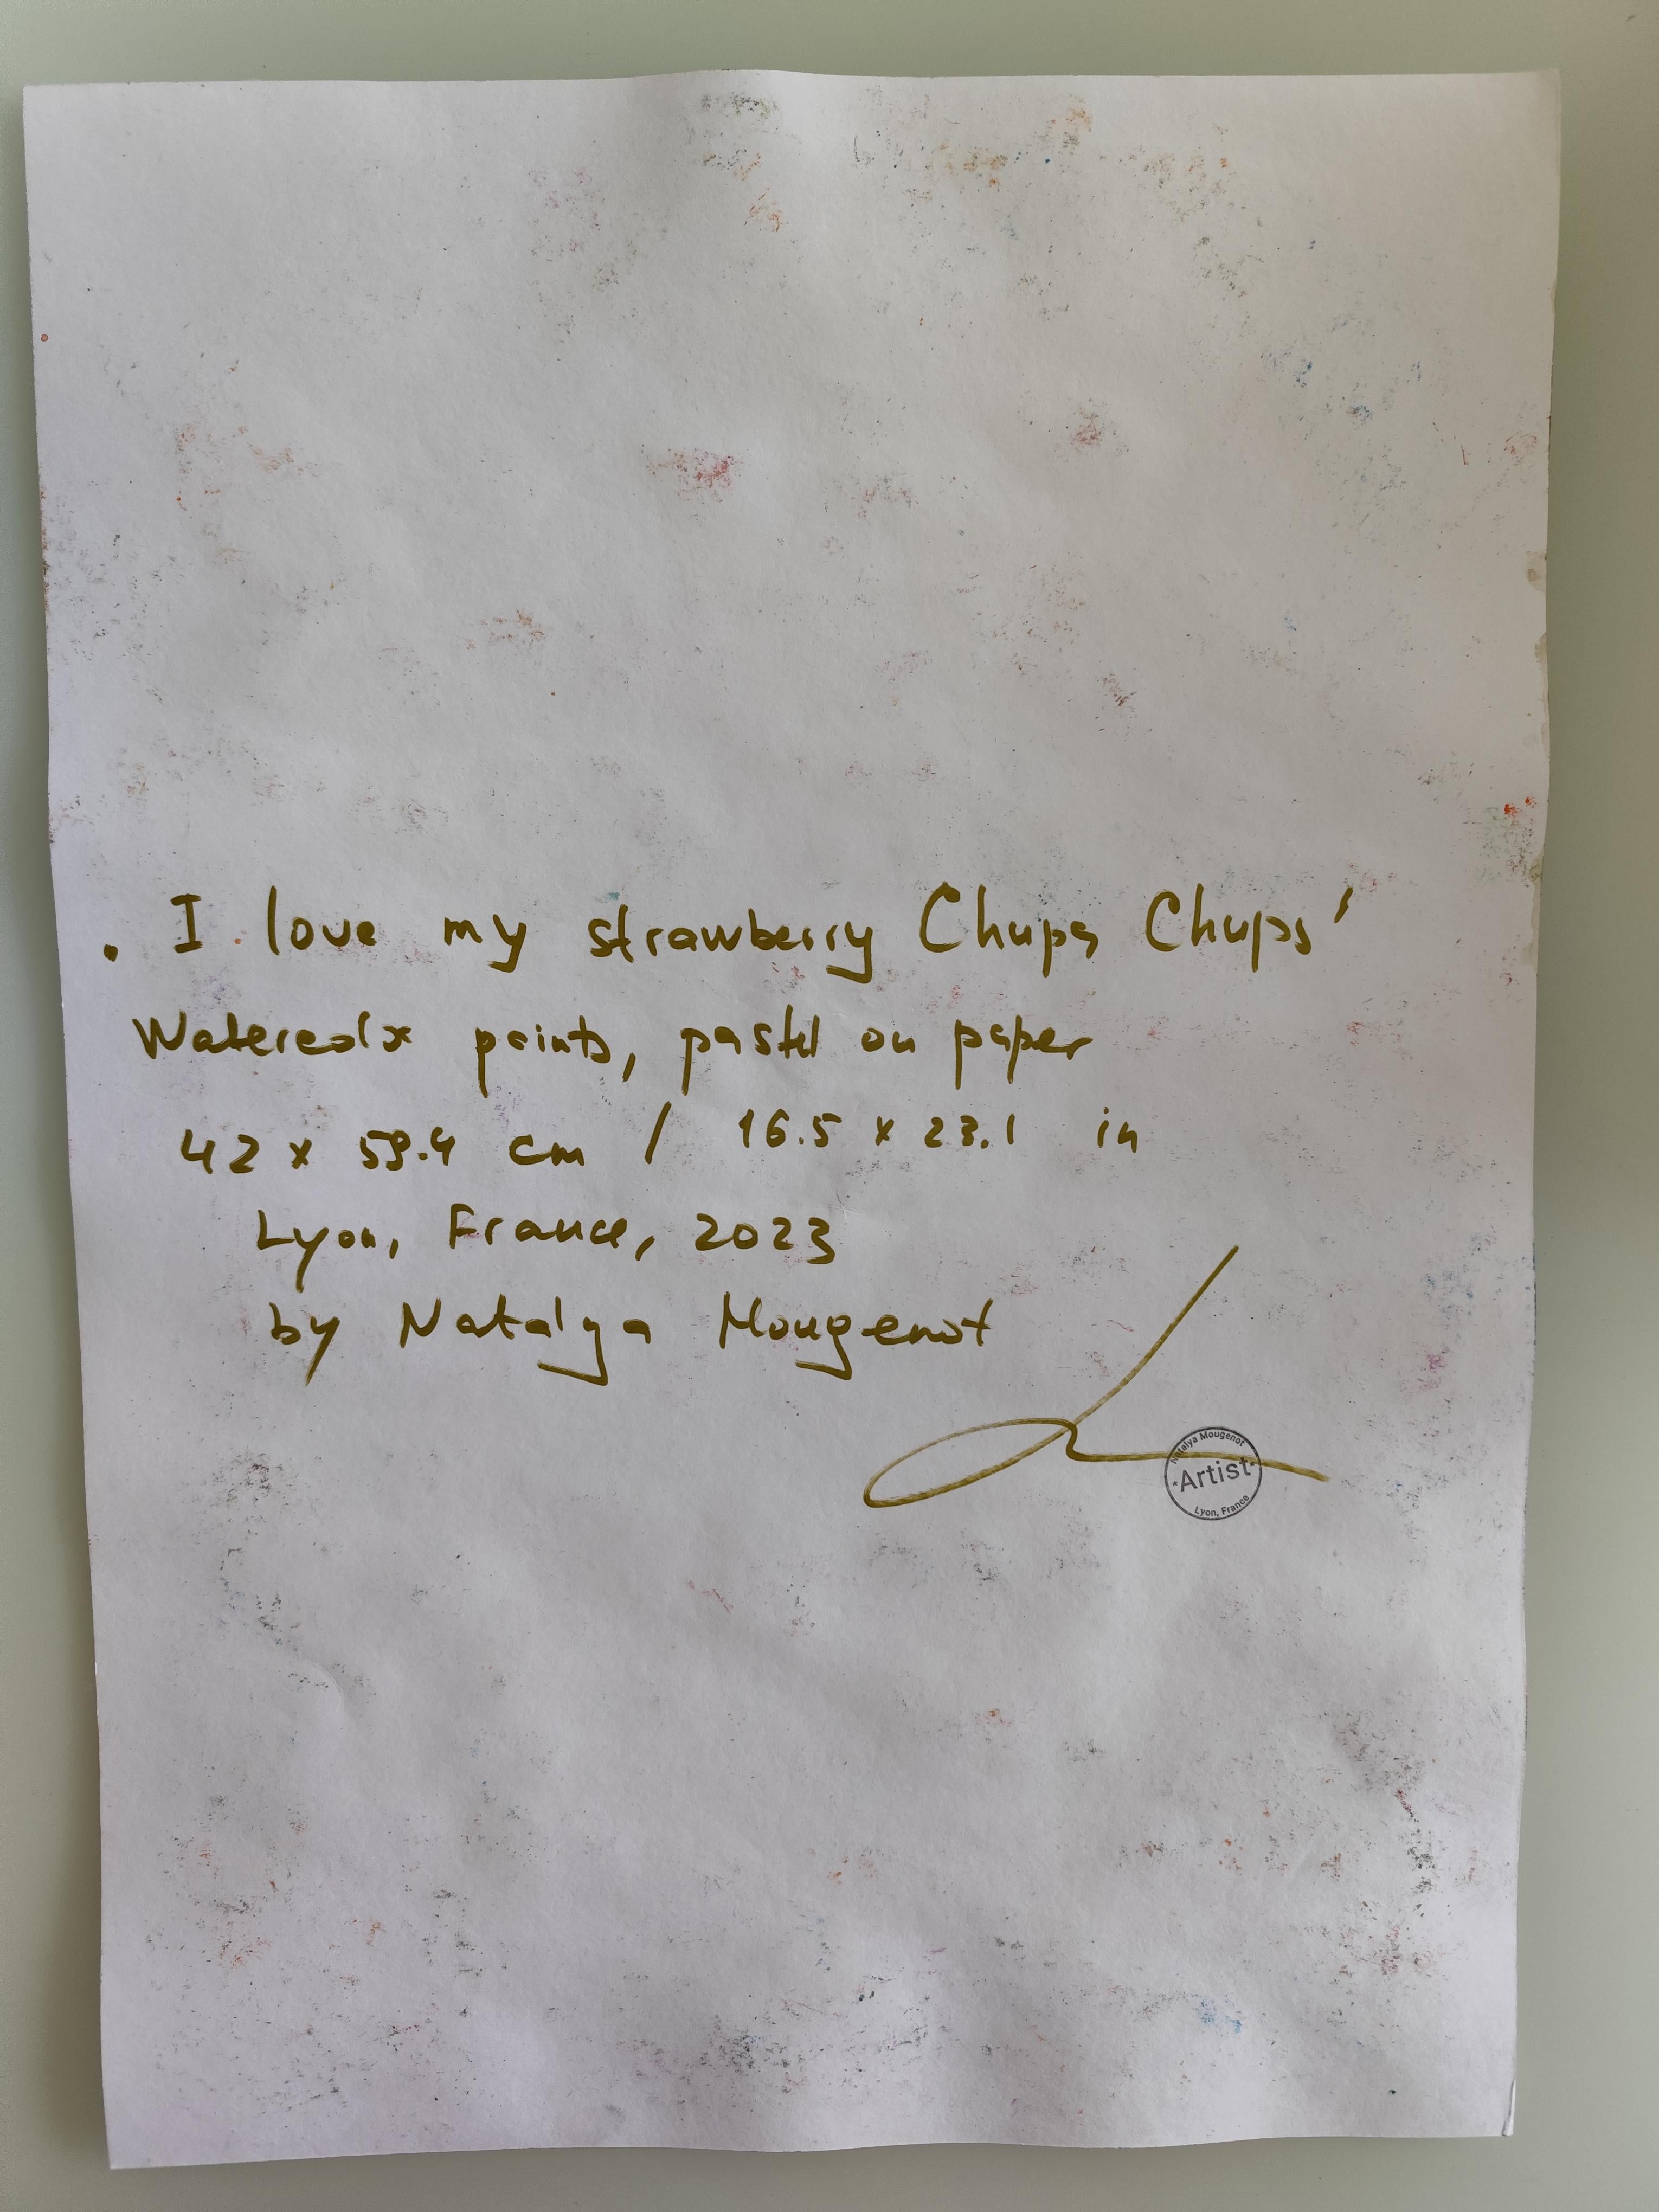 , I love my strawberry Chupa Chups'
Watercolor paints, pastel on paper
42 x 59.4 cm / 16.5 x 23.1 in
Lyon, France, 2023
by Natalya Mougenot
Natalya Mougenot
·Artist·
Lyon, France